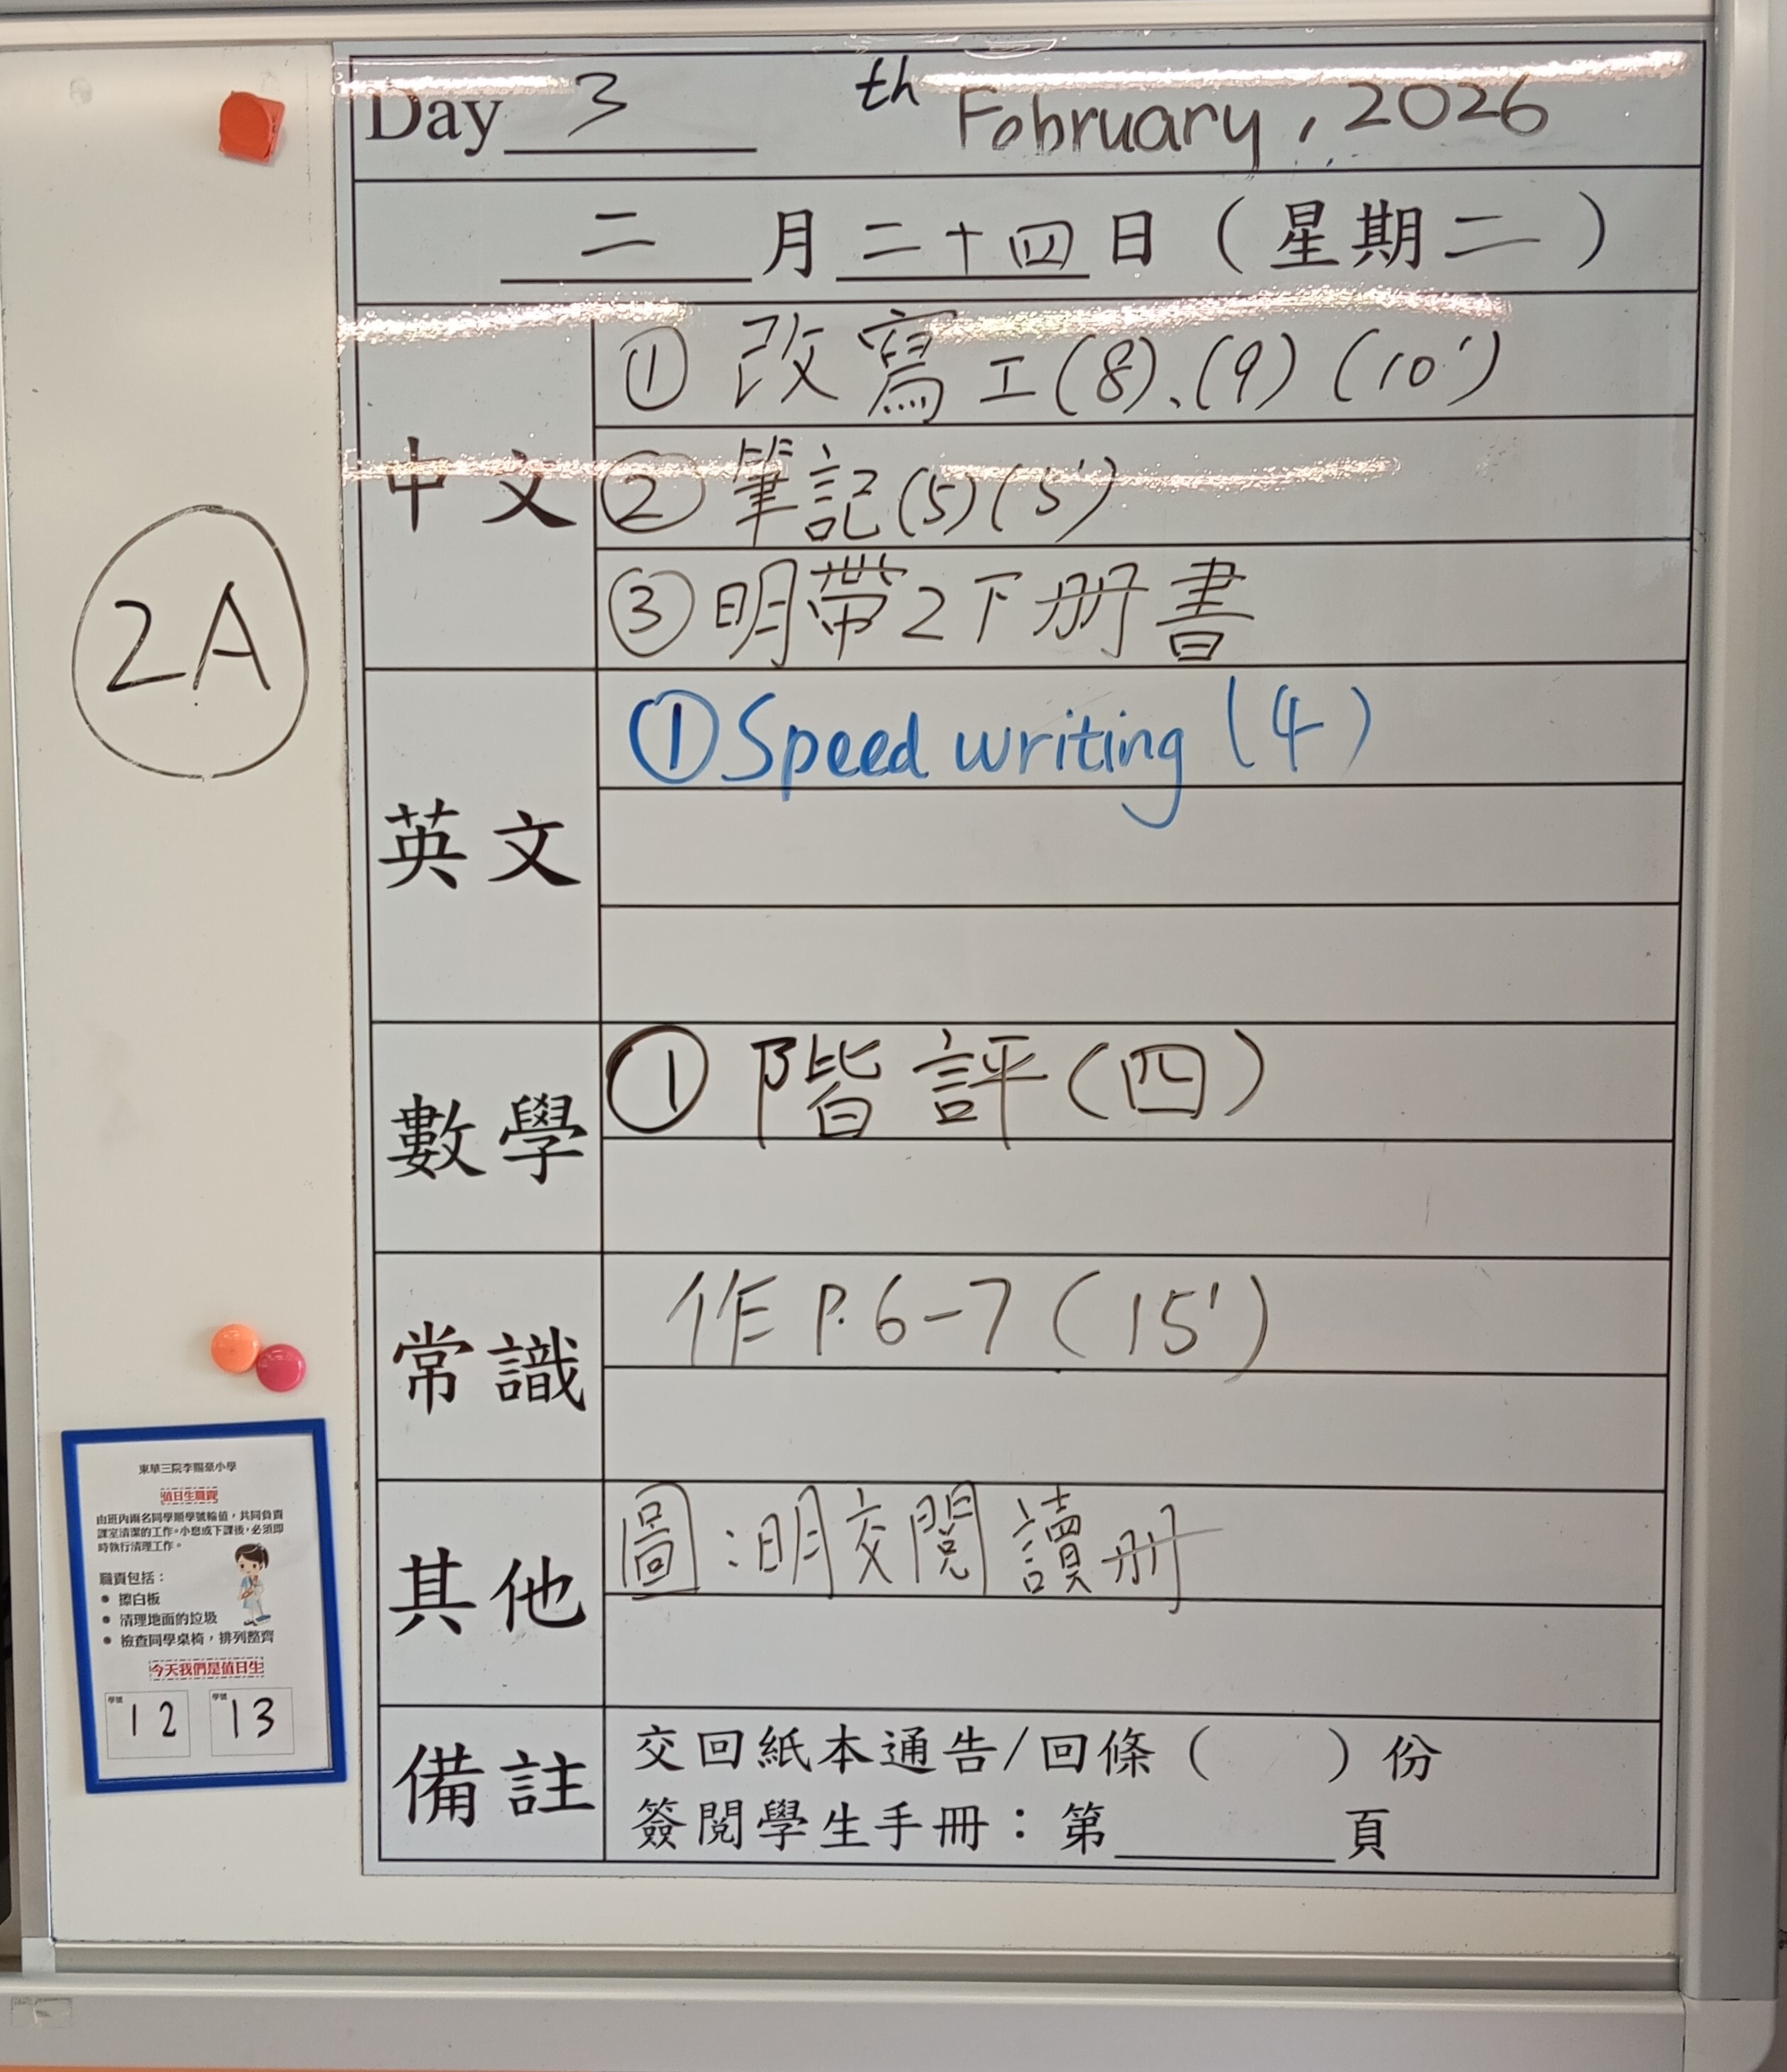 Day 3 th Fobruary, 2026
二 月 二十四 日（星期二）
中文
① 改寫工(8)、(9) (10')
② 筆記(5)(5')
③ 明帶2下册書
英文
① Speed writing (4)
數學
① 階評(四)
常識
作 P.6-7 (15')
其他
圖:明交閱讀册
備註
交回紙本通告/回條（ ）份
簽閱學生手冊：第 頁
2A
東華三院李賜豪小學
值日生職責
由班內兩名同學順學號輪值，共同負責
課室清潔的工作。小息或下課後，必須即
時執行清理工作。
職責包括：
● 擦白板
● 清理地面的垃圾
● 檢查同學桌椅，排列整齊
今天我們是值日生
學號 12 學號 13